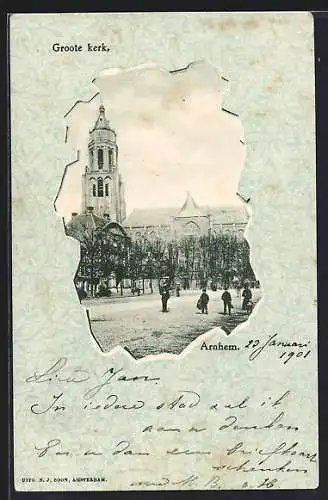 Groote kerk.
Arnhem.
23 Januari
1901
Lieve Jan
In iedere stad zal ik
aan u denken
En u dan een briefkaart
schenken
UITG. N. J. BOON, AMSTERDAM.